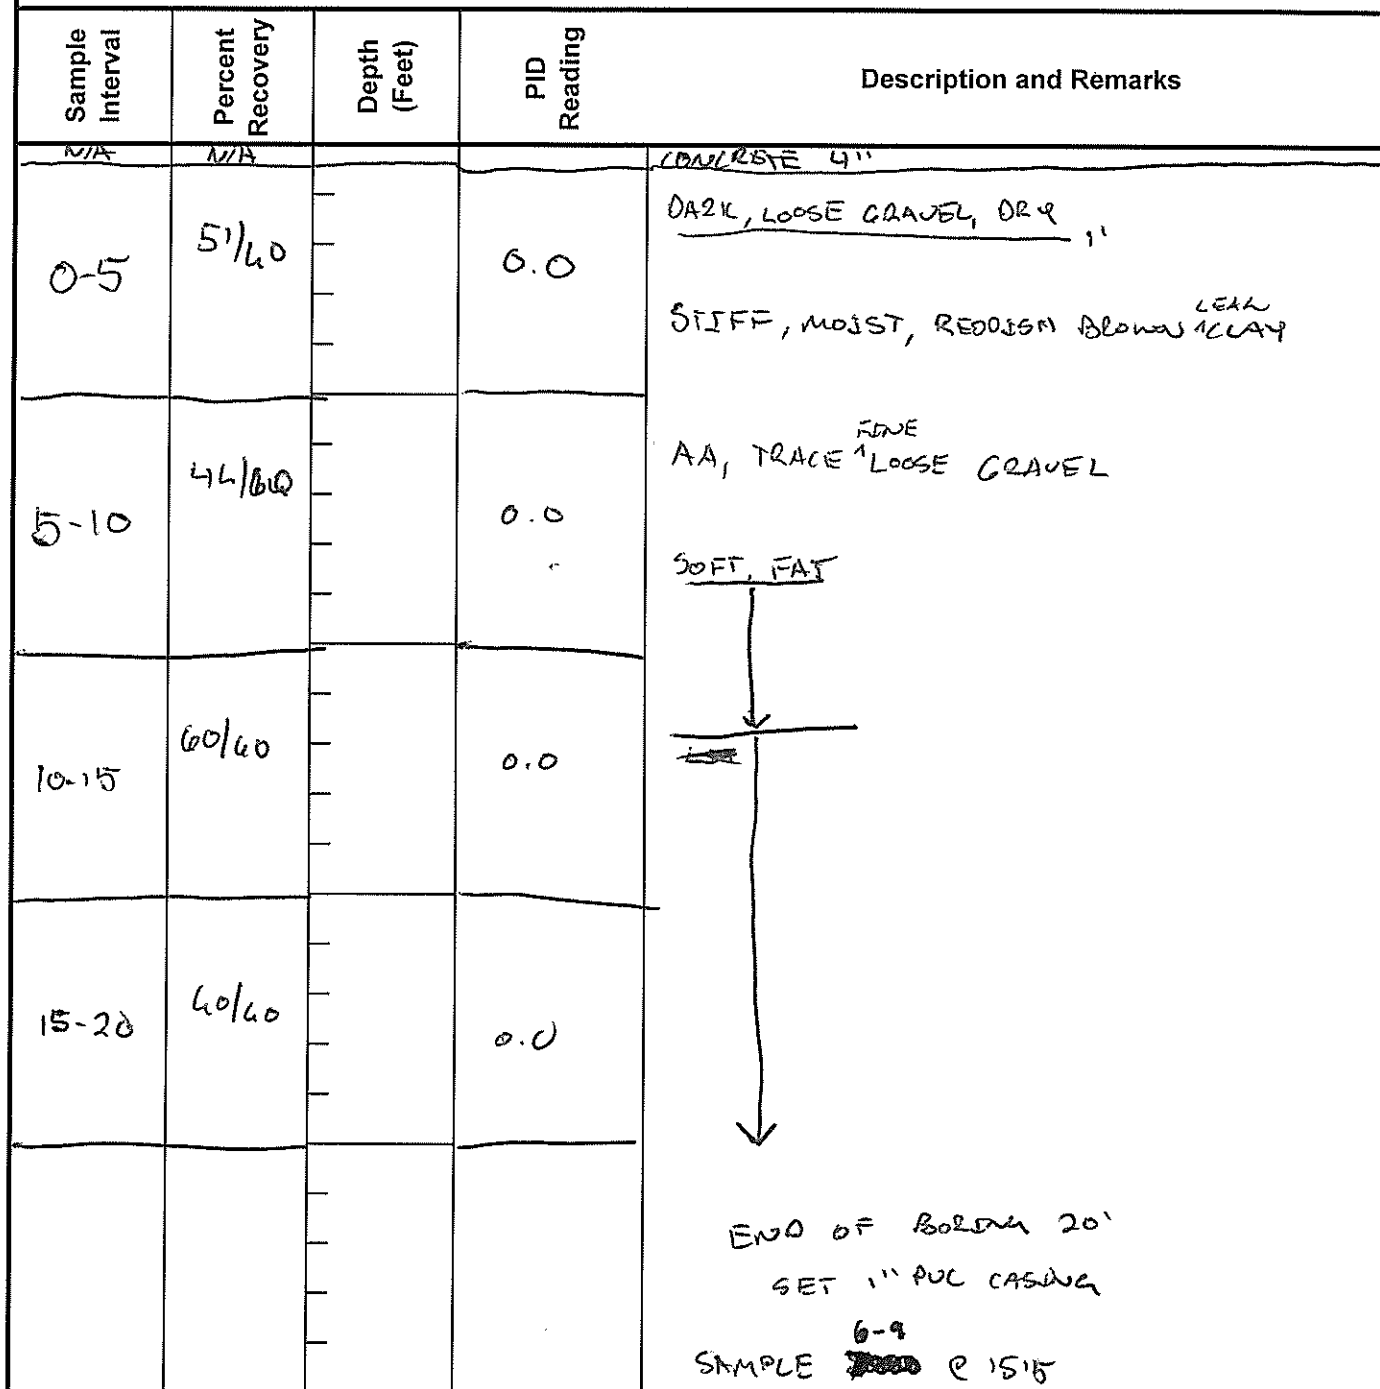 Sample Interval
Percent Recovery
Depth (Feet)
PID Reading
Description and Remarks
N/A N/A CONCRETE 4"
DARK, LOOSE GRAVEL, DRY
0-5 51/60 0.0
STIFF, MOIST, REDDISH BROWN LEAN CLAY
AA, TRACE FINE LOOSE GRAVEL
5-10 44/60 0.0
SOFT, FAT
10-15 60/60 0.0
15-20 60/60 0.0
END OF BORING 20'
SET 1" PVC CASING
6-9
SAMPLE @ 1515